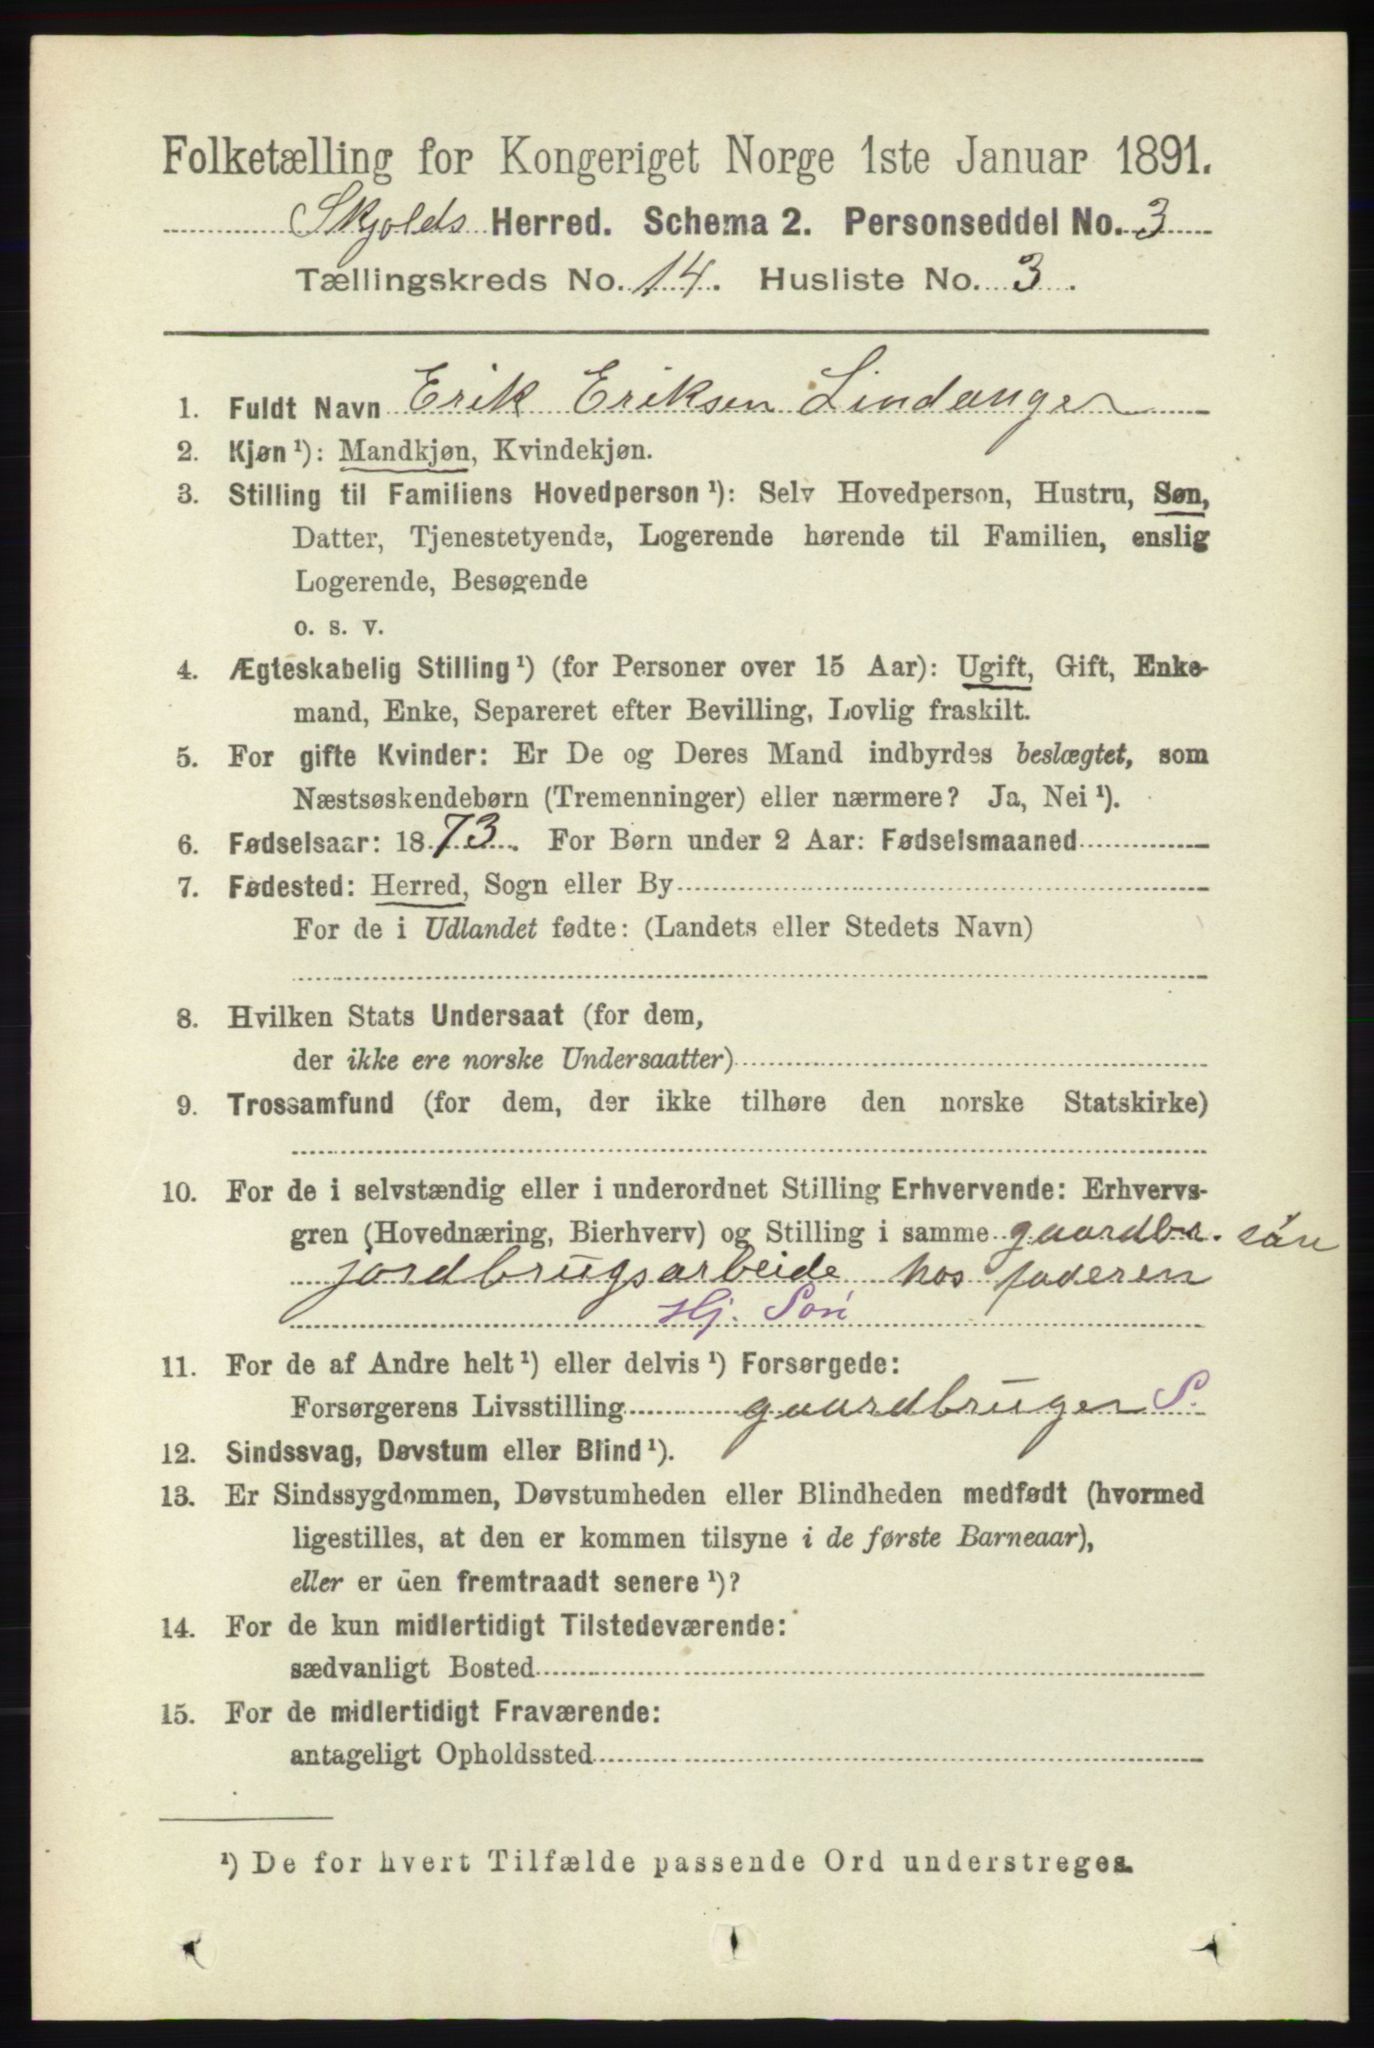 Folketælling for Kongeriget Norge 1ste Januar 1891.
Skjolds Herred. Schema 2. Personseddel No. 3
Tællingskreds No. 14. Husliste No. 3.
1. Fuldt Navn Erik Eriksen Lindanger
2. Kjøn¹): Mandkjøn, Kvindekjøn.
3. Stilling til Familiens Hovedperson¹): Selv Hovedperson, Hustru, Søn,
Datter, Tjenestetyende, Logerende hørende til Familien, enslig
Logerende, Besøgende
o. s. v.
4. Ægteskabelig Stilling¹) (for Personer over 15 Aar): Ugift, Gift, Enke-
mand, Enke, Separeret efter Bevilling, Lovlig fraskilt.
5. For gifte Kvinder: Er De og Deres Mand indbyrdes beslægtet, som
Næstsøskendebørn (Tremenninger) eller nærmere? Ja, Nei¹).
6. Fødselsaar: 1873. For Børn under 2 Aar: Fødselsmaaned
7. Fødested: Herred, Sogn eller By
For de i Udlandet fødte: (Landets eller Stedets Navn)
8. Hvilken Stats Undersaat (for dem,
der ikke ere norske Undersaatter)
9. Trossamfund (for dem, der ikke tilhøre den norske Statskirke)
10. For de i selvstændig eller i underordnet Stilling Erhvervende: Erhvervs-
gren (Hovednæring, Bierhverv) og Stilling i samme gaardbr. sön
jordbrugsarbeide hos faderen
Hj. Søn
11. For de af Andre helt¹) eller delvis¹) Forsørgede:
Forsørgerens Livsstilling gaardbruger S.
12. Sindssvag, Døvstum eller Blind¹).
13. Er Sindssygdommen, Døvstumheden eller Blindheden medfødt (hvormed
ligestilles, at den er kommen tilsyne i de første Barneaar),
eller er den fremtraadt senere¹)?
14. For de kun midlertidigt Tilstedeværende:
sædvanligt Bosted
15. For de midlertidigt Fraværende:
antageligt Opholdssted
¹) De for hvert Tilfælde passende Ord understreges.